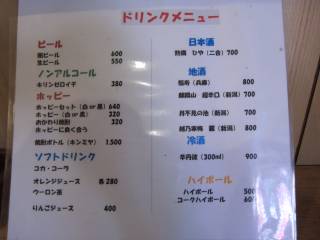 ドリンクメニュー
ビール
瓶ビール 600
生ビール 550
ノンアルコール
キリンゼロイチ 380
ホッピー
ホッピーセット(白or黒) 640
ホッピー(白or黒) 320
おかわり焼酎 320
ホッピーに良く合う
焼酎ボトル(キンミヤ) 1,500
ソフトドリンク
コカ・コーラ
オレンジジュース 各280
ウーロン茶
りんごジュース 400
日本酒
熱燗 ひや(二合) 700
地酒
福寿(兵庫) 800
麒麟山 超辛口(新潟) 700
月不見の池(新潟) 700
越乃寒梅 灑(新潟) 800
冷酒
辛丹波(300ml) 900
ハイボール
ハイボール 500
コークハイボール